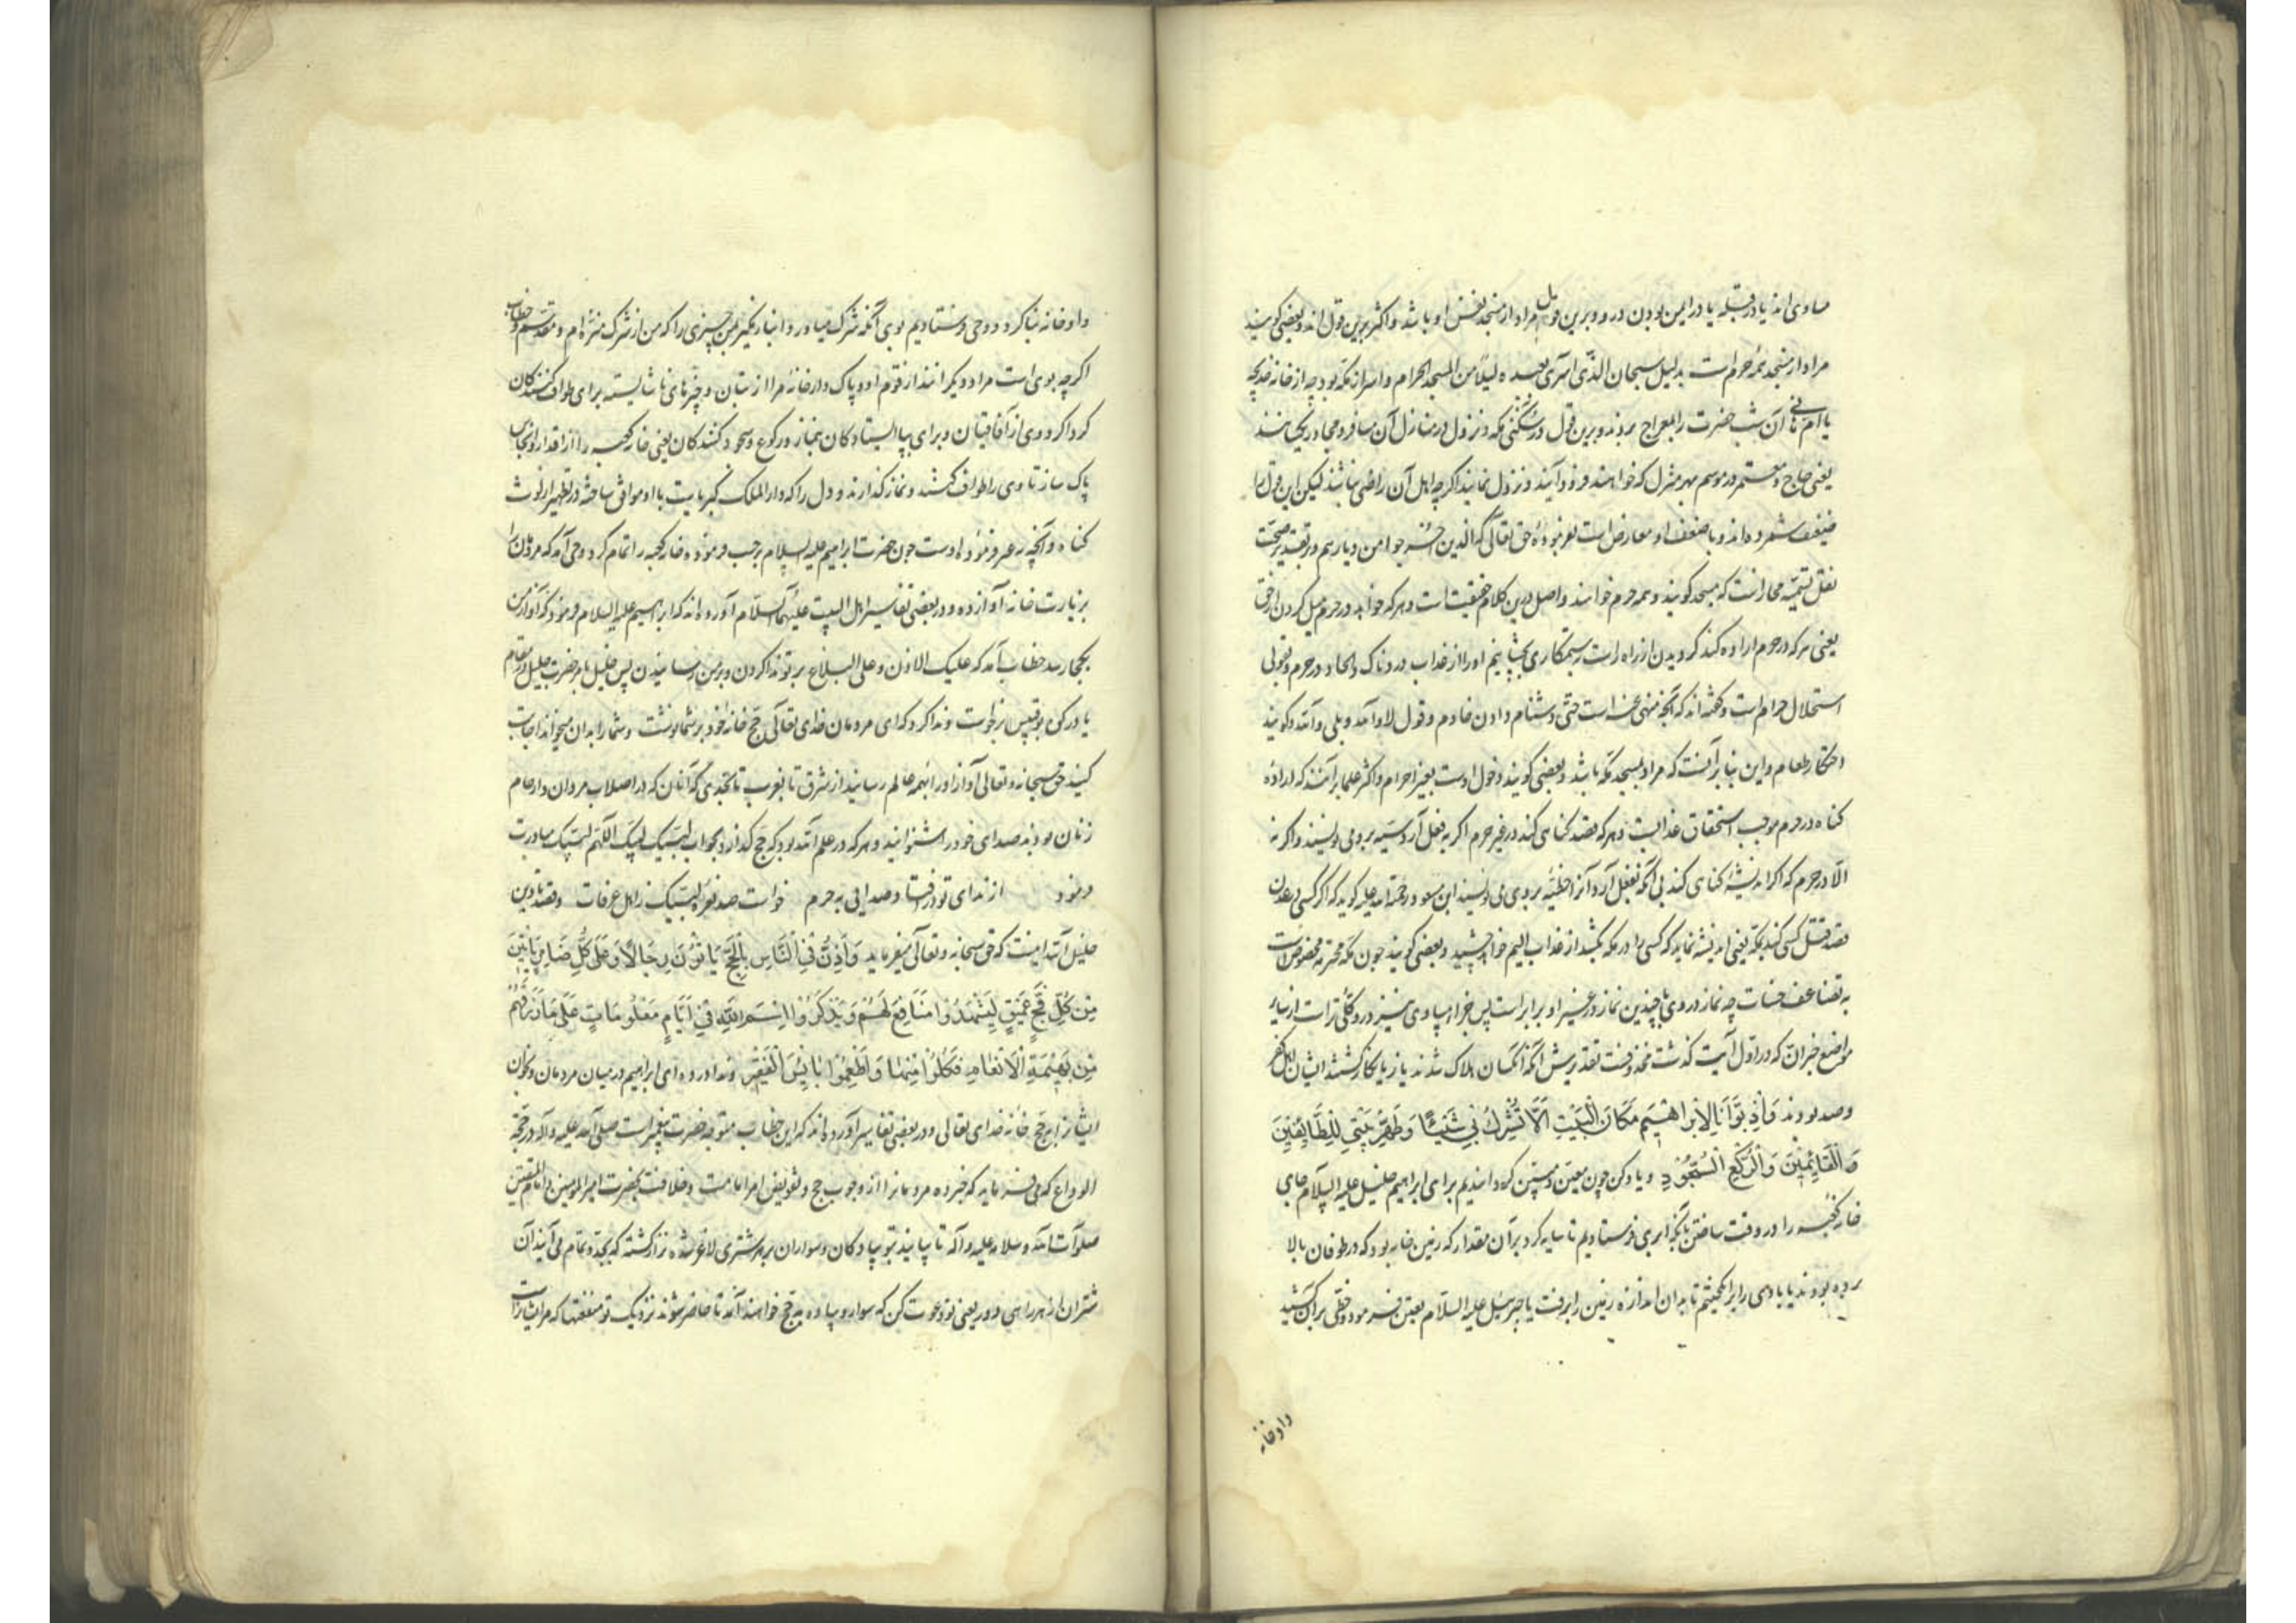 مساوی اند یا در قبله یا در ایمن بودن درو و برین قول مراد از مسجد نفس او باشد و اکثر برین قول اند و بعضی کویند
مراد از مسجد همه حرم است بدلیل سبحان الذی اسری بعبده لیلا من المسجد الحرام و اسرا از مکه بود چه از خانه خدیجه
یا ام هانی آن شب حضرت را بمعراج بردند و برین قول در سکنی مکه و نزول در منازل آن مسافر و مجاور یکسانند
یعنی حاج و معتمر در موسم بهر منزل که خواهند فرود آیند و نزول نمایند اکرچه اهل آن راضی نباشند لیکن این قول را
ضعیف شمرده اند و با ضعف او معارض است بفرموده حق تعالی که الذین اخرجوا من دیارهم و بر تقدیر صحت
نقل تسمیه مجاز است که مسجد کویند و همه حرم خواهند و اصل درین کلام حقیقت است و هرکه خواهد در حرم میل کردن از حق
یعنی هرکه در حرم اراده کند کردیدن از راه راست بستمکاری بچشانیم او را از عذاب دردناک و الحاد در حرم بقولی
استحلال حرام است و کفته اند که آنچه منهی عنه است حتی دشنام دادن خادم و قول لا والله و بلی والله و کویند
احتکار طعام و این بنا بر آنست که مراد بمسجد مکه باشد و بعضی کویند دخول اوست بغیر احرام و اکثر علما برآنند که اراده
کناه در حرم موجب استحقاق عذابست و هرکه قصد کناهی کند در غیر حرم اکر به فعل آرد سیئه برو می نویسند و اکر نه
الا در حرم که اکر اندیشه کناهی کند بی آنکه بفعل آرد آنرا خطیئه بر وی می نویسند ابن مسعود رحمة الله علیه کوید که اکر کسی در عدن
قصد قتل کسی کند بمکه یعنی اندیشه نماید که کسی را در مکه بکشد از عذاب الیم خواهد چشید و بعضی کویند چون مکه محترمه مخصوص است
به تضاعف حسنات چه نماز در وی با چندین نماز در غیر او برابر است پس جزاء سیاوی نیز درو کلی تر است از سایر
مواضع خبر ان که در اول آیت کذشت محذوفست تقدیرش آنکه آنکسان هلاک شدند یا زیانکار کشتند ایشان اهل کفر
وصد بودند وَاِذْ بَوَّأْنَا لِاِبْرَاهِیمَ مَکَانَ الْبَیْتِ اَلَّا تُشْرِكْ بِي شَیْئًا وَطَهِّرْ بَیْتِيَ لِلطَّائِفِینَ
وَالْقَائِمِینَ وَالرُّکَّعِ السُّجُودِ و یاد کن چون معین و مبین کردانیدیم برای ابراهیم خلیل علیه السلام جای
خانه کعبه را در وقت ساختن بآنکه ابری فرستادیم تا سایه کرد بر آن مقدار که زمین خانه بود که در طوفان بالا
برده بودند یا بادی را برانکیختیم تا بدان اندازه زمین را برفت یا جبرئیل علیه السلام تعیین فرمود و خطی بر آن کشید
داو خانه
داو خانه بنا کرد و وحی فرستادیم بوی آنکه شرک میاور و انباز مکیر بمن چیزی را که من از شرک منزه ام و مقدسم و خطاب
اکرچه بوی است مراد دیکرانند از قوم او و پاک دار خانه مرا از بتان و چیزهای ناشایسته برای طواف کنندکان
کرداکرد وی از آفاقیان و برای بپا ایستادکان بنماز و رکوع و سجود کنندکان یعنی خانه کعبه را از اقدار و انجاس
پاک ساز تا وی را طواف کنند و نماز کذارند و دل را که دار الملک کبریاست با او موافق ساخته در تطهیر از لوث
کناه و آنچه غیر فرموده اوست چون حضرت ابراهیم علیه السلام برحسب فرموده خانه کعبه را تمام کرد وحی آمد که مردمان را
بزیارت خانه آواز ده و در بعضی تفاسیر اهل البیت علیهم السلام آورده اند که ابراهیم علیه السلام فرمود که آواز من
بکجا رسد خطاب آمد که علیک الاذن و علی البلاغ بر تو ندا کردن و بر من رسانیدن پس خلیل بامر حضرت جلیل در مقام
یا در کوه بوقبیس برخواست و ندا کرد که ای مردمان خدای تعالی حج خانه خود بر شما نوشت و شما را بدان میخواند اجابت
کنید حق سبحانه و تعالی آواز او را بهمه عالم رسانید از مشرق تا بمغرب تا بحدی که آنان که در اصلاب مردان و ارحام
زنان بودند صدای خود را شنوانید و هرکه در علم آمده بود که حج کذارد بجواب لبیک لبیک اللهم لبیک مبادرت
فرمود از ندای تو در فتاد صدایی به حرم خواست صد نعره لبیک ز اهل عرفات و قصه تاذین
خلیل آنند اینست که حق سبحانه و تعالی میفرماید وَاَذِّنْ فِي النَّاسِ بِالْحَجِّ یَأْتُوكَ رِجَالًا وَعَلٰی کُلِّ ضَامِرٍ یَأْتِینَ
مِنْ کُلِّ فَجٍّ عَمِیقٍ لِیَشْهَدُوا مَنَافِعَ لَهُمْ وَیَذْکُرُوا اسْمَ اللّٰهِ فِي اَیَّامٍ مَعْلُومَاتٍ عَلٰی مَا رَزَقَهُمْ
مِنْ بَهِیمَةِ الْاَنْعَامِ فَکُلُوا مِنْهَا وَاَطْعِمُوا الْبَائِسَ الْفَقِیرَ و ندا در ده ای ابراهیم در میان مردمان و بخوان
ایشان را بحج خانه خدای تعالی و در بعضی تفاسیر آورده اند که این خطاب متوجه حضرت پیغمبر است صلی الله علیه و آله در حجة
الوداع که می فرماید که خبر ده مردمانرا از وجوب حج و تفویض امر امامت و خلافت بحضرت امیر المؤمنین و امام المتقین
صلوات الله و سلامه علیه و آله تا بیایند بتو پیادکان و سواران بر هر شتری لاغر شده نزار کشته که بجد تمام می آیند آن
شتران از هر راهی دور یعنی تو دعوت کن که سوار و پیاده به حج خواهند آمد تا حاضر شوند نزدیک تو منفعتها که مر ایشانراست